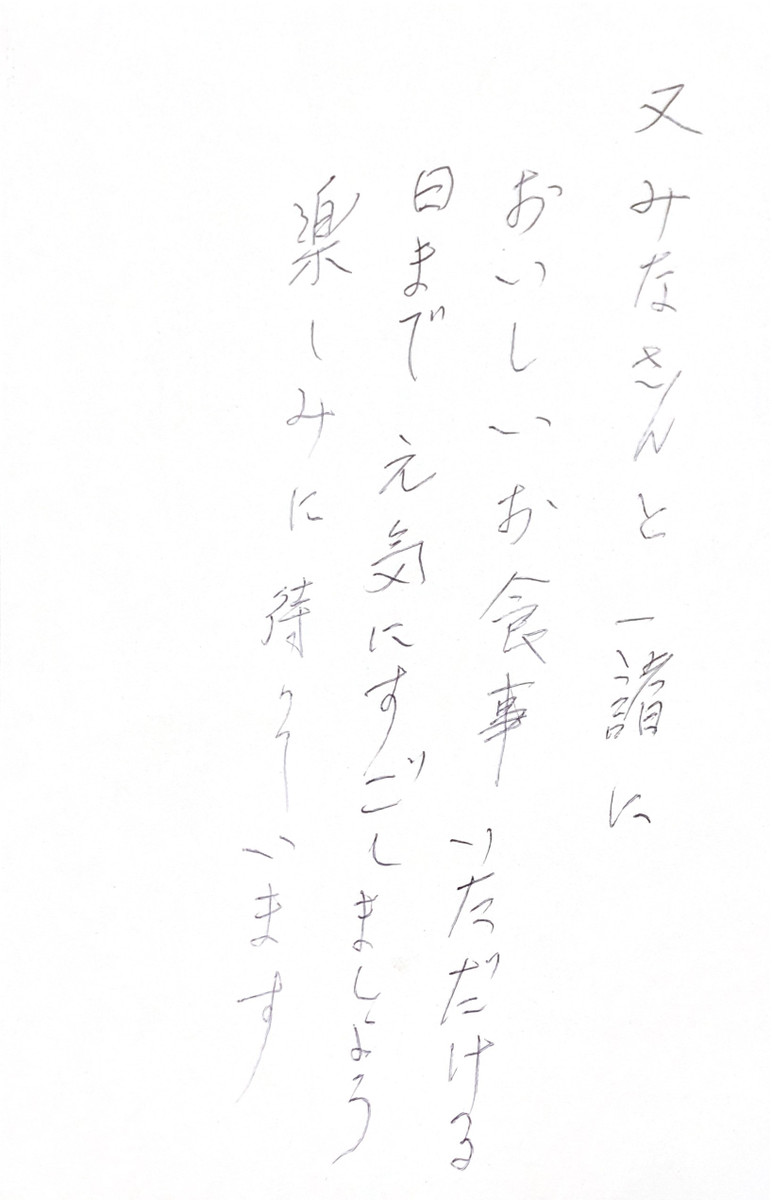 又みなさんと一諸に
おいしいお食事いただける
日まで元気にすごしましよう
楽しみに待っています